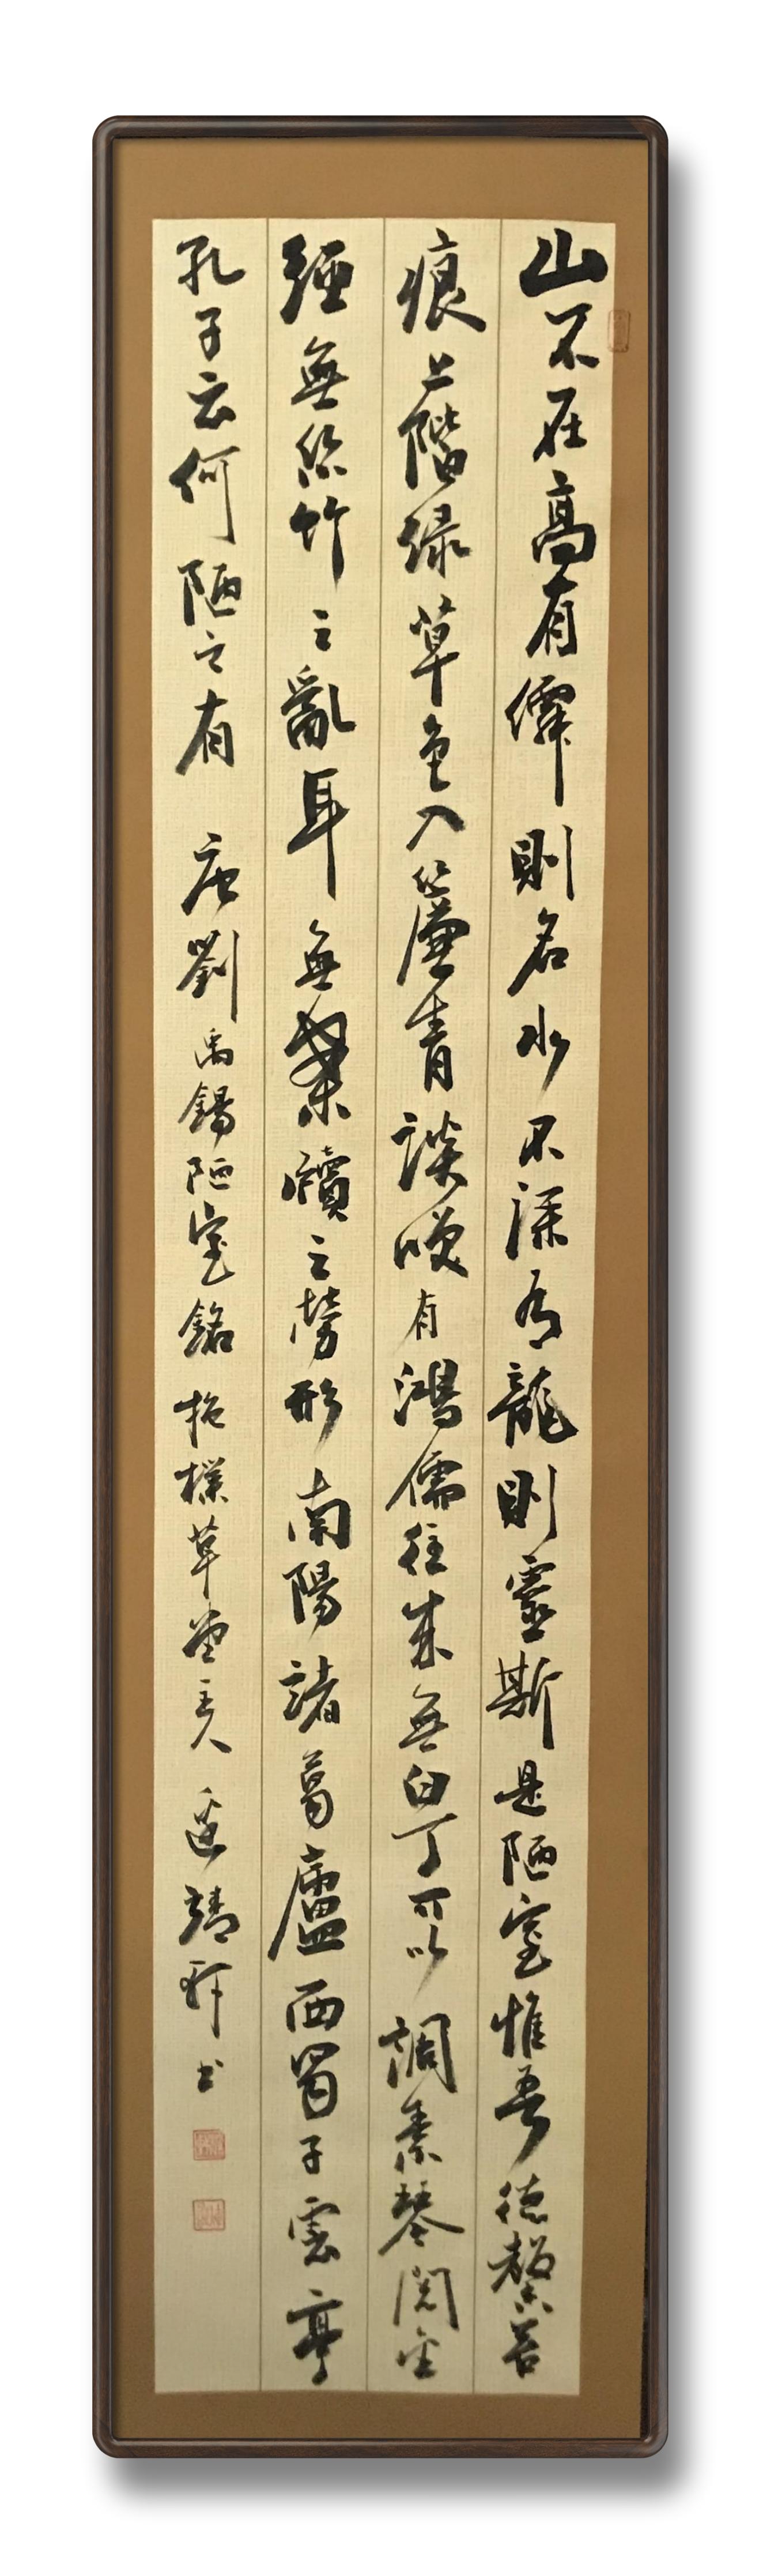 山不在高有僊則名水不深有龍則靈斯是陋室惟吾德馨苔
痕上階緑草色入簾青談咲有鴻儒往来無白丁可以調素琴閱金
經無絲竹之亂耳無案牘之勞形南陽諸葛廬西蜀子雲亭
孔子云何陋之有 唐劉禹錫陋室銘 抱樸草堂主人 书